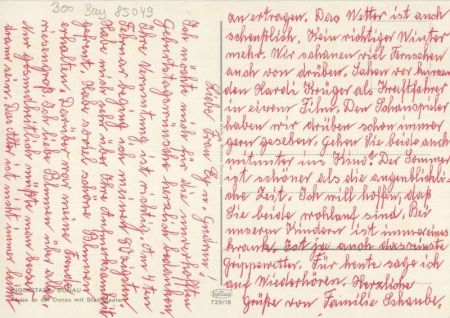 300 Bay 85049
Liebe Frau Ey u. Gudrun!
Ich möchte mich für die unverhofften
Geburtstagswünsche herzlich bedanken,
Ihre Vermutung ist richtig. Am 4ten
Februar beging ich meinen 80zigsten
Habe mich sehr über Ihre Aufmerksamkeit
gefreut. Habe soviel schöne Blumen
erhalten. Darüber war meine Freude
riesengroß. Ich liebe Blumen über alles.
Nur gesundheitlich müßte man besser
dran sein. Das Alter ist nicht immer leicht
an ertragen. Das Wetter ist auch
scheußlich. Kein richtiger Winter
mehr. Wir schauen viel Fernsehen
auch von drüben. Sahen vor kurzem
den Hardi Krüger als Kraftfahrer
in einem Film. Den Schauspieler
haben wir drüben schon immer
gern gesehen. Gehen Sie beide auch
mitunter ins Kino? Der Sommer
ist schöner als die augenblickli-
che Zeit. Ich will hoffen, daß
Sie beide wohlauf sind. Bei
unseren Kindern ist immer eines
krank. Ist ja auch das reinste
Grippewetter. Für heute sage ich
auf Wiederhören. Herzliche
Grüße von Familie Schaube.
INGOLSTADT / DONAU
Partie an der Donau mit Stadttheater
729/18